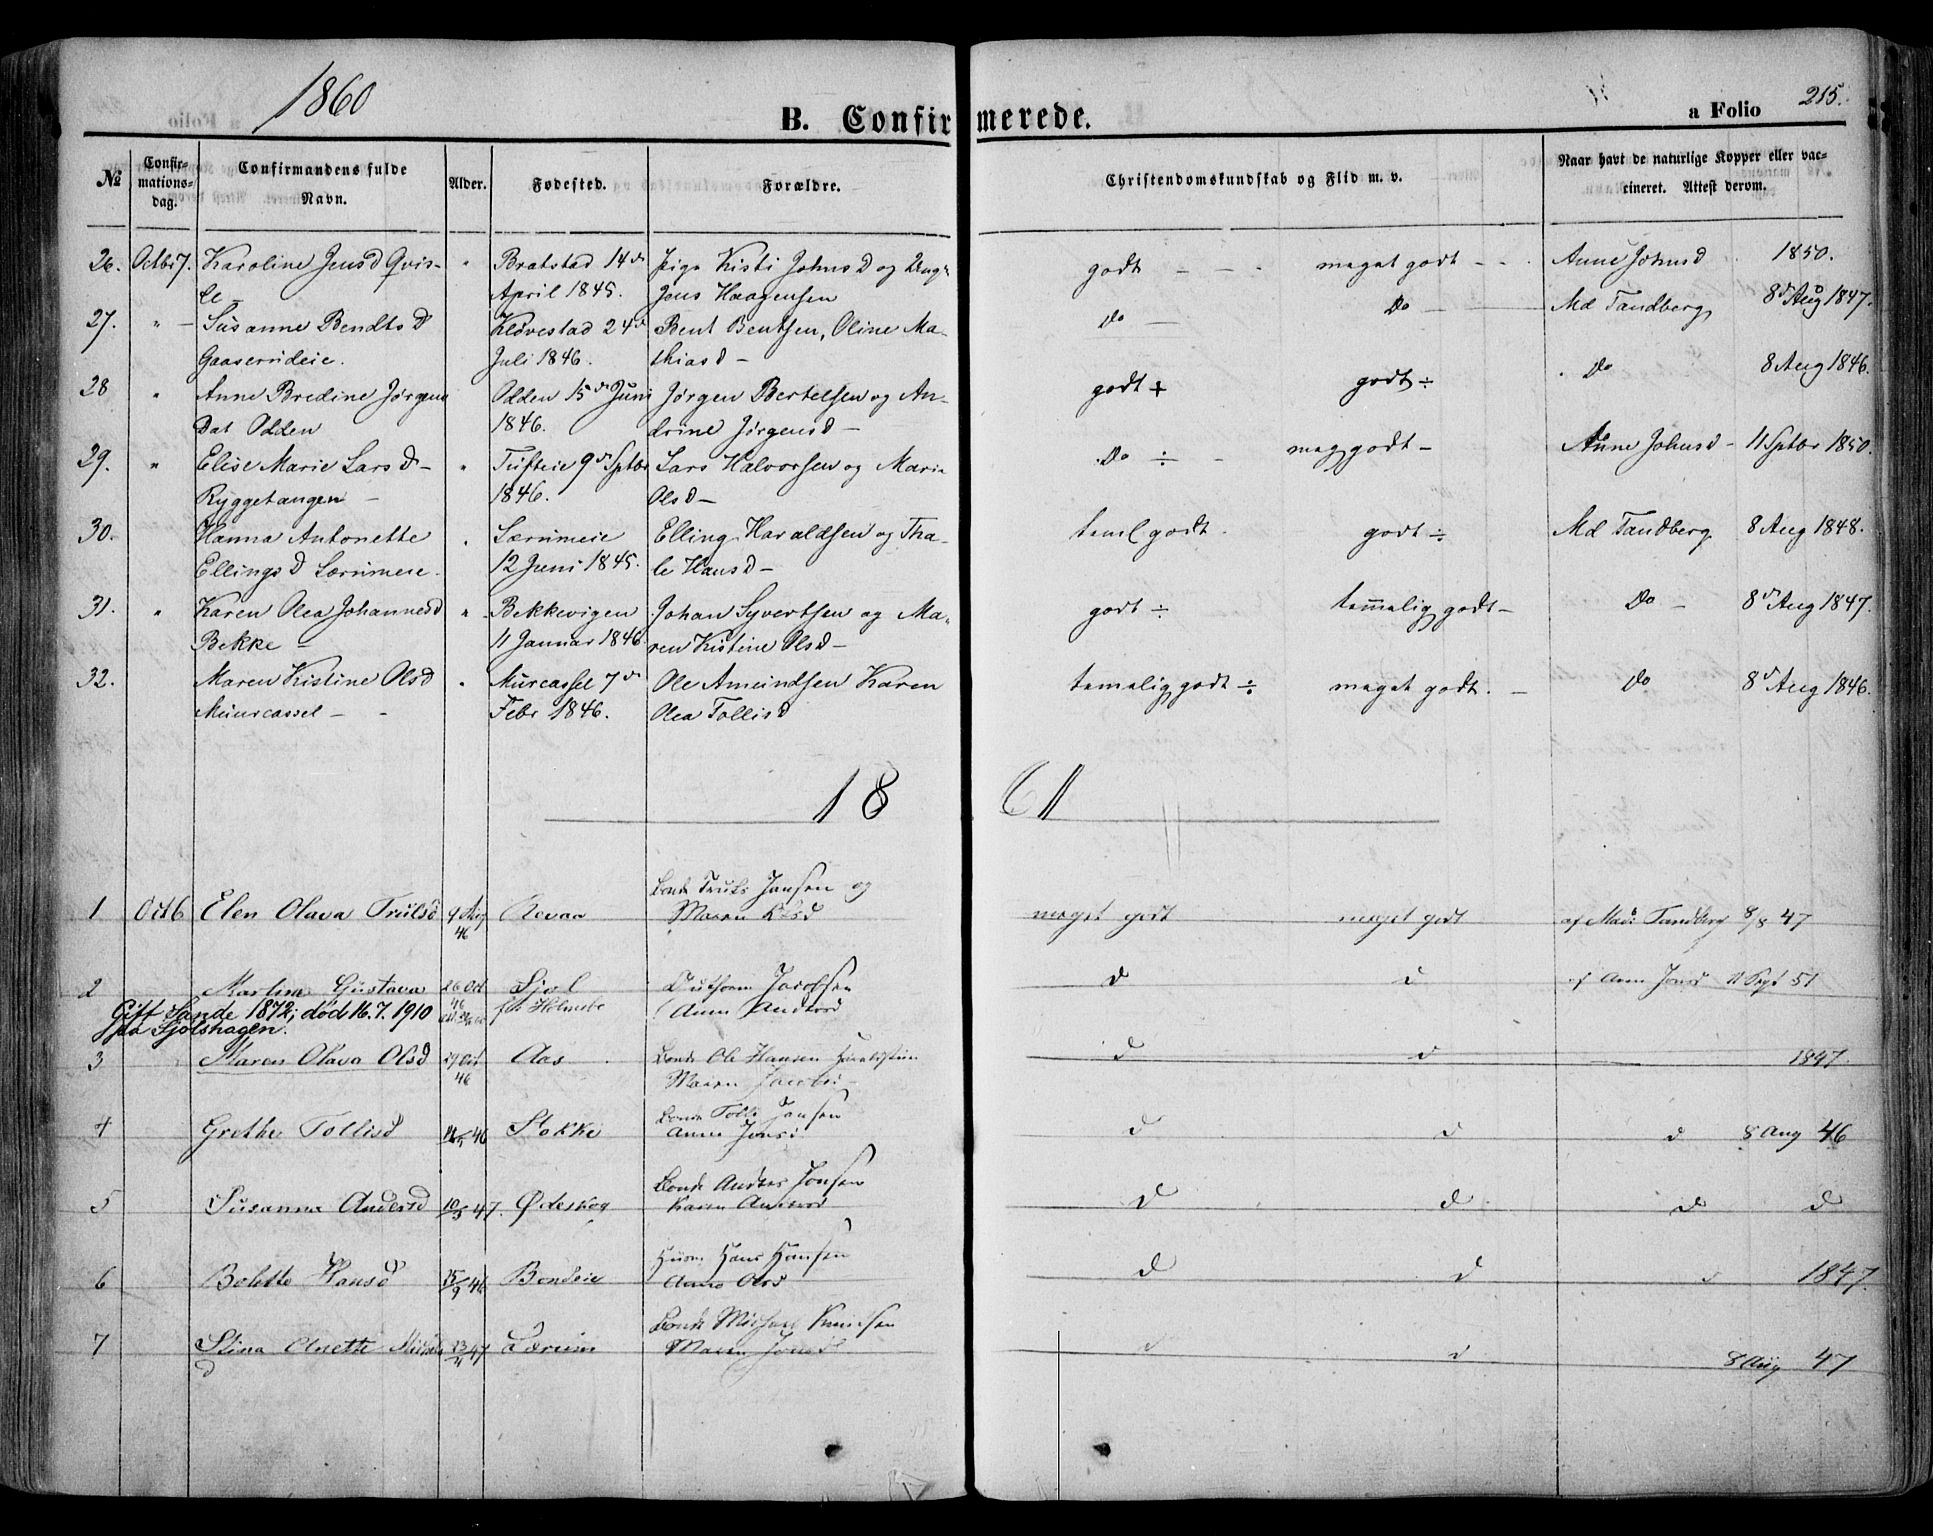 1860
B. Confirmerede.
a Folio 215.
No
Confir-
mations-
dag.
Confirmandens fulde
Navn.
Alder.
Fødested.
Forældre.
Christendomskundskab og Flid m. v.
Naar havt de naturlige Kopper eller vac-
cineret. Attest derom.
26. Octbr 7. Karoline Jensd Qvis- " Bratstad 14de Pige Kisti Johnsd og Ungk godt - - - meget godt - - Anne Johnsd 1850.
le - April 1845. Jens Haagensen
27. " Susanne Bendtsd Kløvestad 24de Bent Bentsen, Oline Ma- Do - Do - Md Tandberg 8d Aug 1847.
Gaaserudeie. " Juli 1846. thiasd -
28 " Anne Bredine Jørgens Odden 15de Juni Jørgen Bertelsen og An- godt + godt ÷ Do 8 Aug 1846.
dat Odden 1846. drine Jørgensd -
29. " Elise Marie Larsd - " Tufteie 9de Sptbr Lars Halvorsen og Marie Do ÷ - meg godt - Anne Johnsd - 11 Sptbr 1850.
Ryggetangen - 1846. Olsd -
30. Hanna Antonette " Lærumeie Elling Haraldsen og Tha- teml godt. godt ÷ Md Tandberg 8 Aug 1848.
Ellingsd Lærumeie. 12 Juni 1845. le Hansd -
31. " Karen Olea Johannesd " Bekkevigen Johan Syvertsen og Ma- godt ÷ temmelig godt - Do - 8d Aug 1847.
Bekke - 11 Januar 1846. ren Kistine Olsd -
32. Maren Kistine Olsd " Murcassel 7de Ole Amundsen Karen temelig godt ÷ meget godt. - Do 8d Aug 1846.
Muurcassel - - Febr 1846. Olea Tollisd
1861
Bonde Truls Jansen og
1 Oct 6 Elen Olava Trulsd 9 Aug Revaa Maren Olsd meget godt meget godt af Mad: Tandberg 8/8 47
46
2 Martine Gustava 26 Oct Sjøl Jacobsen d d af Ann Jonsd 11 Sept 51
46
Gift Sande 1872; død 16.7.1910 Anne Andersd
paa Sjølshagen.
3 Maren Olava Olsd 29 Oct Aas Bonde Ole Hansen d d 1847.
46 Maren Jacobsd -
Bonde Tolli Jansen
4 Grethe Tollisd 46 Stokke Anne Jonsd d d d 8 Aug 46
Bonde Anders Jonsen
5 Susanna Andersd 10/3 47. Ødeskog Karen d d d d
Husm Hans Hansen
6 Bolette Hansd 15/9 46 Bondeie Anne Olsd d d d 1847.
Bonde Michael Knudsen
7 Stina Anette 47 Lærum Maren Jonsd d d 8 Aug 47
d